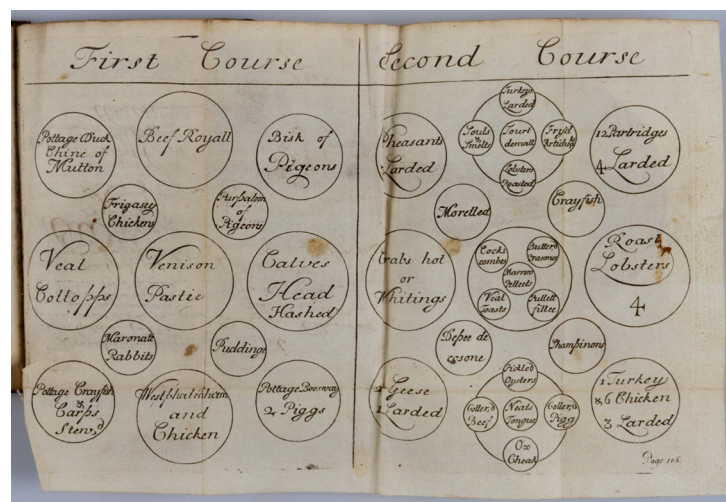 First Course
Pottage Duck
Chine of
Mutton
Beef Royall
Bisk of
Pigeons
Frigasey
Chickens
of
Pigeons
Veal
Collopps
Venison
Pastie
Calves
Head
Hashed
Maronatt
Rabbits
Puddings
Pottage Crayfish
&
Carps
Stew,d
Westphalia ham
and
Chicken
Pottage
2 Piggs
Second Course
Pheasants
Larded
Turkeys
Larded
Souls
&
Smelts
Tourt
dematt
Fry'd
Artichea
Lobsters
Roasted
12 Partridges
4 Larded
Morelled
Crayfish
Crabs hot
or
Whitings
Cocks
combes
Butterd
Marrow
Pelleets
Veal
Toasts
Pullett
fillee
Roast
Lobsters
4
Champinons
2 Geese
1 Larded
Pickled
Oysters
Coller,d
Beef
Neats
Tongue
Coller,d
Pigg
Ox
Cheak
1 Turkey
& 6 Chicken
3 Larded
Page 106.